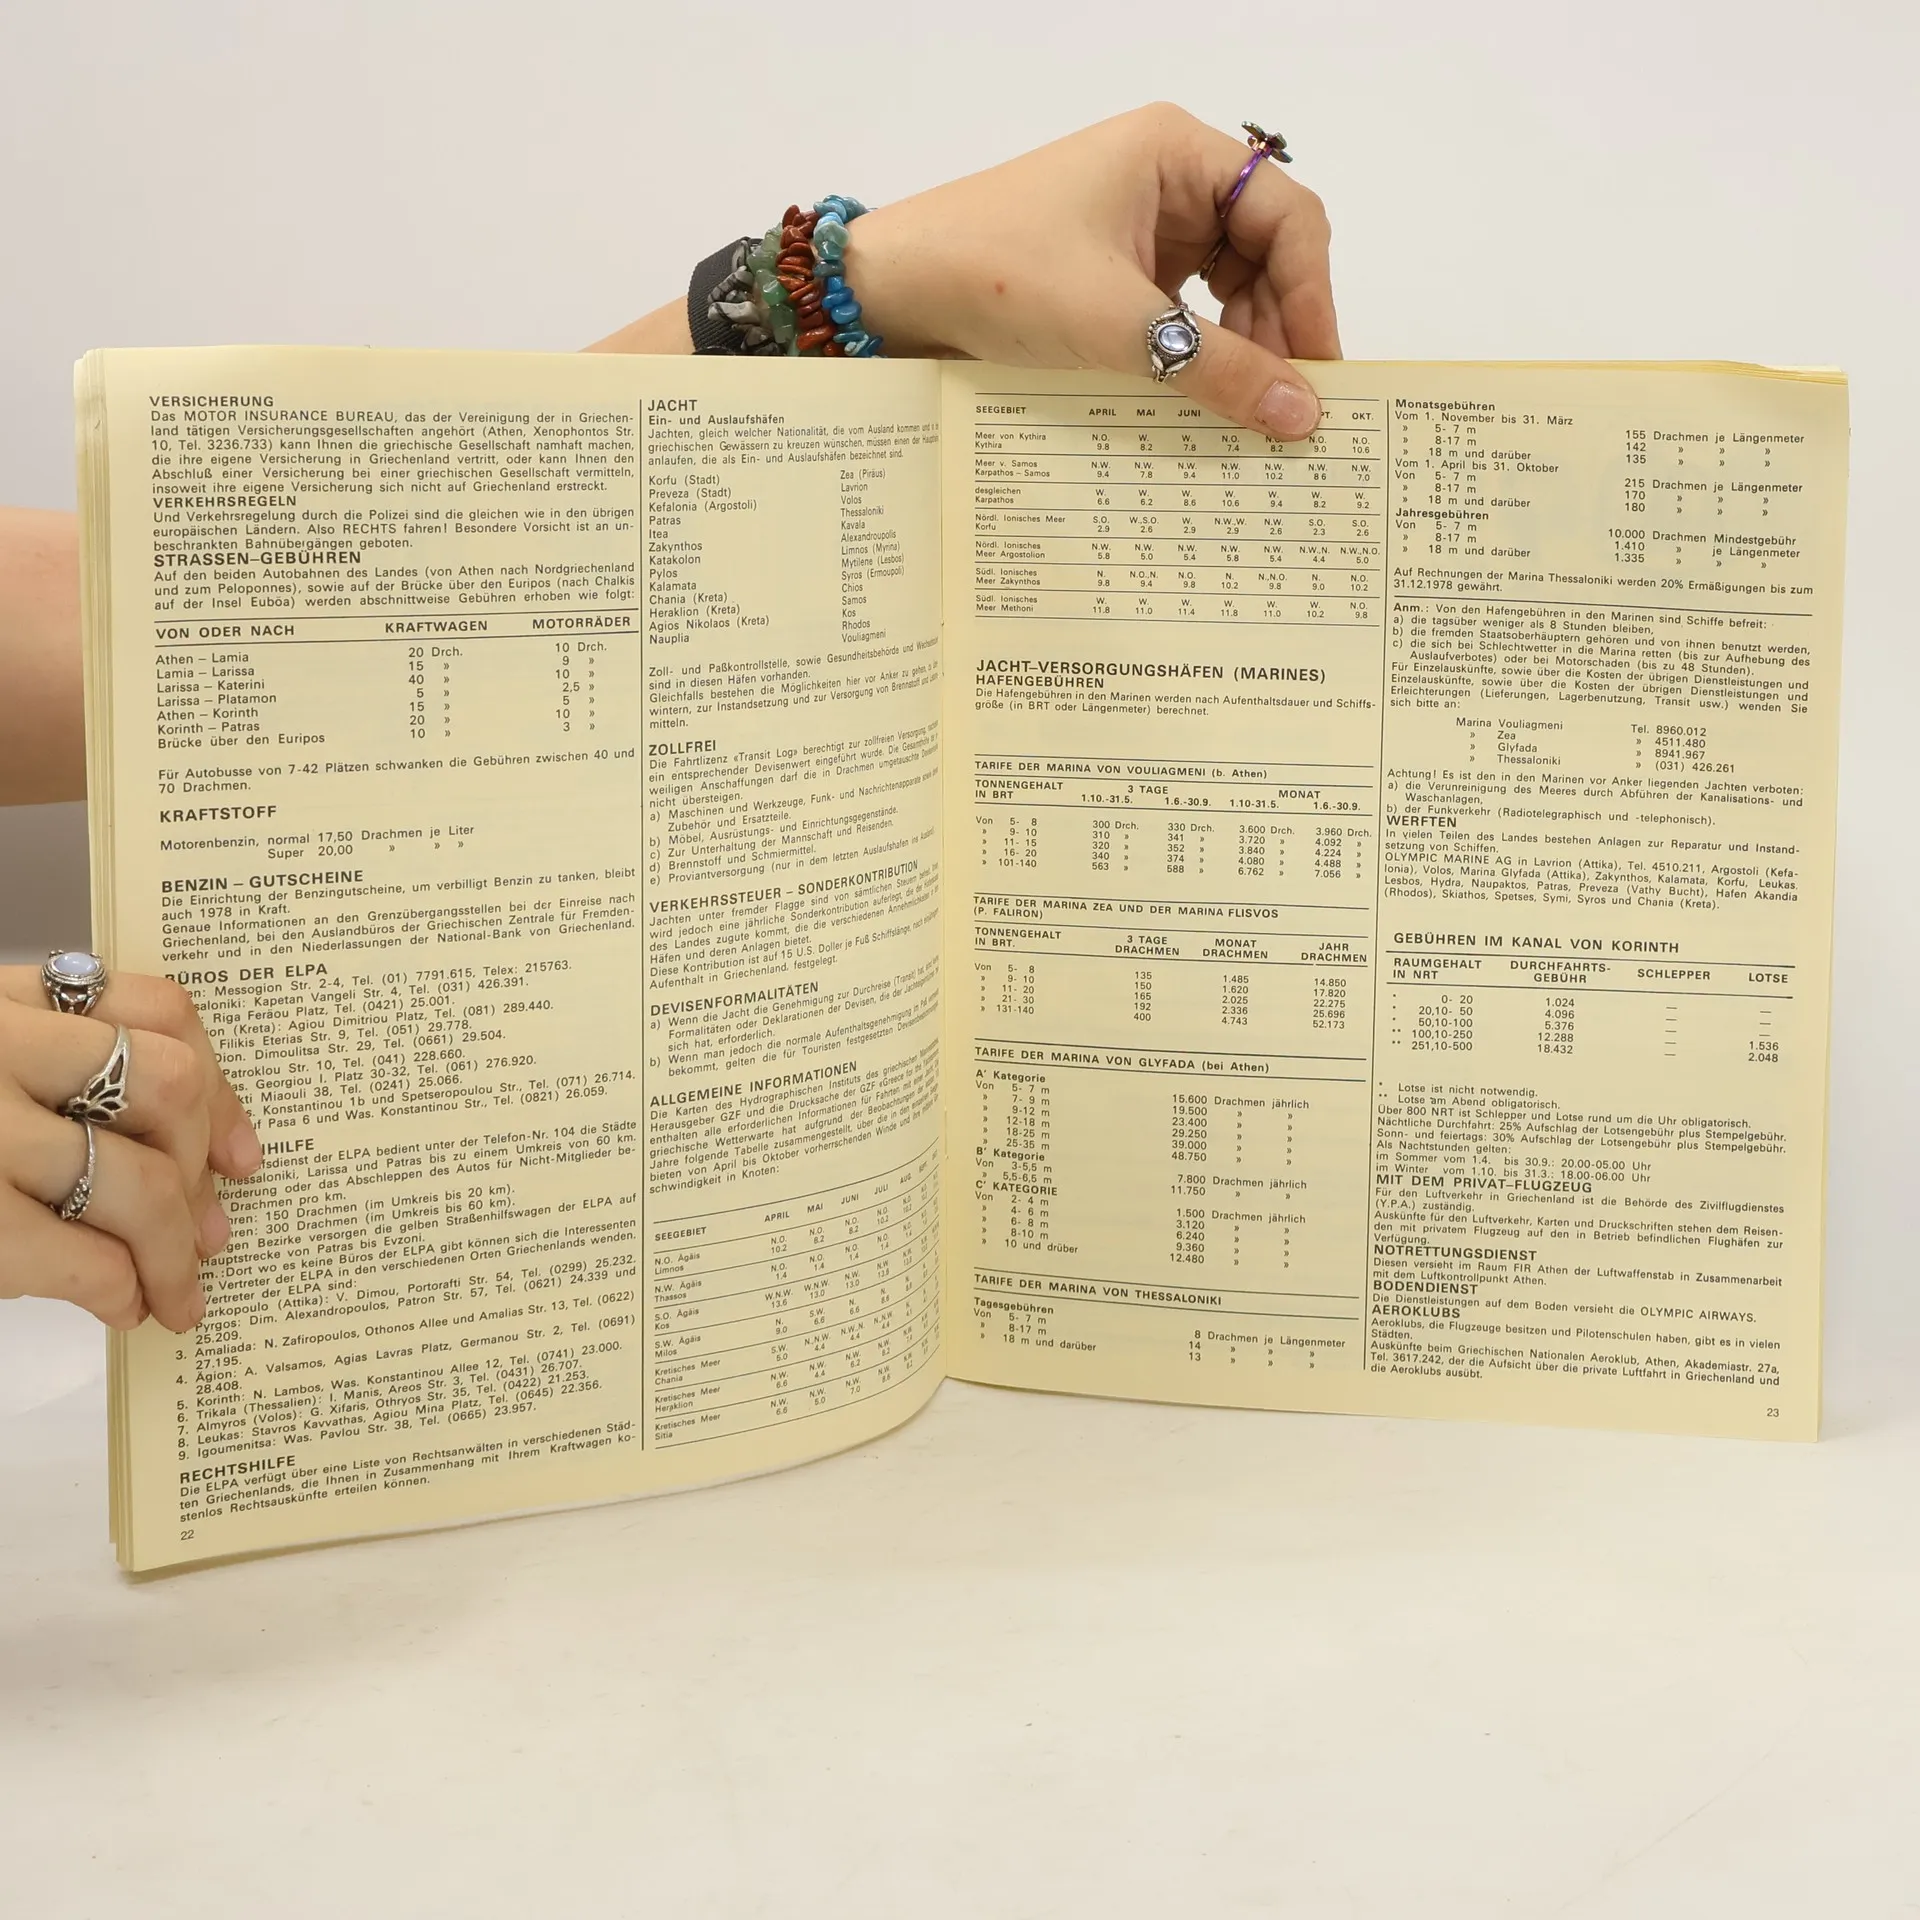 VERSICHERUNG
Das MOTOR INSURANCE BUREAU, das der Vereinigung der in Griechen-
land tätigen Versicherungsgesellschaften angehört (Athen, Xenophontos Str.
10, Tel. 3236.733) kann Ihnen die griechische Gesellschaft namhaft machen,
die ihre eigene Versicherung in Griechenland vertritt, oder kann Ihnen den
Abschluß einer Versicherung bei einer griechischen Gesellschaft vermitteln,
insoweit ihre eigene Versicherung sich nicht auf Griechenland erstreckt.
VERKEHRSREGELN
Und Verkehrsregelung durch die Polizei sind die gleichen wie in den übrigen
europäischen Ländern. Also RECHTS fahren! Besondere Vorsicht ist an un-
beschrankten Bahnübergängen geboten.
STRASSEN–GEBÜHREN
Auf den beiden Autobahnen des Landes (von Athen nach Nordgriechenland
und zum Peloponnes), sowie auf der Brücke über den Euripos (nach Chalkis
auf der Insel Euböa) werden abschnittweise Gebühren erhoben wie folgt:
VON ODER NACH KRAFTWAGEN MOTORRÄDER
Athen – Lamia 20 Drch. 10 Drch.
Lamia – Larissa 15 » 9 »
Larissa – Katerini 40 » 10 »
Larissa – Platamon 5 » 2,5 »
Athen – Korinth 15 » 5 »
Korinth – Patras 20 » 10 »
Brücke über den Euripos 10 » 3 »
Für Autobusse von 7-42 Plätzen schwanken die Gebühren zwischen 40 und
70 Drachmen.
KRAFTSTOFF
Motorenbenzin, normal 17,50 Drachmen je Liter
Super 20,00 » » »
BENZIN – GUTSCHEINE
Die Einrichtung der Benzingutscheine, um verbilligt Benzin zu tanken, bleibt
auch 1978 in Kraft.
Genaue Informationen an den Grenzübergangsstellen bei der Einreise nach
Griechenland, bei den Auslandbüros der Griechischen Zentrale für Fremden-
verkehr und in den Niederlassungen der National-Bank von Griechenland.
BÜROS DER ELPA
Messogion Str. 2-4, Tel. (01) 7791.615, Telex: 215763.
Kapetan Vangeli Str. 4, Tel. (031) 426.391.
Riga Feräou Platz, Tel. (0421) 25.001.
(Kreta): Agiou Dimitriou Platz, Tel. (081) 289.440.
Filikis Eterias Str. 9, Tel. (051) 29.778.
Dion. Dimoulitsa Str. 29, Tel. (0661) 29.504.
Patroklou Str. 10, Tel. (041) 228.660.
Georgiou I. Platz 30-32, Tel. (061) 276.920.
Miaouli 38, Tel. (0241) 25.066.
Konstantinou 1b und Spetseropoulou Str., Tel. (071) 26.714.
Pasa 6 und Was. Konstantinou Str., Tel. (0821) 26.059.
der ELPA bedient unter der Telefon-Nr. 104 die Städte
Thessaloniki, Larissa und Patras bis zu einem Umkreis von 60 km.
oder das Abschleppen des Autos für Nicht-Mitglieder be-
Drachmen pro km.
150 Drachmen (im Umkreis bis 20 km).
300 Drachmen (im Umkreis bis 60 km).
Bezirke versorgen die gelben Straßenhilfswagen der ELPA auf
Hauptstrecke von Patras bis Evzoni.
Dort wo es keine Büros der ELPA gibt können sich die Interessenten
Vertreter der ELPA in den verschiedenen Orten Griechenlands wenden.
Vertreter der ELPA sind:
(Attika): V. Dimou, Portorafti Str. 54, Tel. (0299) 25.232.
Pyrgos: Dim. Alexandropoulos, Patron Str. 57, Tel. (0621) 24.339 und
25.209.
3. Amaliada: N. Zafiropoulos, Othonos Allee und Amalias Str. 13, Tel. (0622)
27.195.
4. Ägion: A. Valsamos, Agias Lavras Platz, Germanou Str. 2, Tel. (0691)
28.408.
5. Korinth: N. Lambos, Was. Konstantinou Allee 12, Tel. (0741) 23.000.
6. Trikala (Thessalien): I. Manis, Areos Str. 3, Tel. (0431) 26.707.
7. Almyros (Volos): G. Xifaris, Othryos Str. 35, Tel. (0422) 21.253.
8. Leukas: Stavros Kavvathas, Agiou Mina Platz, Tel. (0645) 22.356.
9. Igoumenitsa: Was. Pavlou Str. 38, Tel. (0665) 23.957.
RECHTSHILFE
Die ELPA verfügt über eine Liste von Rechtsanwälten in verschiedenen Städ-
ten Griechenlands, die Ihnen in Zusammenhang mit Ihrem Kraftwagen ko-
stenlos Rechtsauskünfte erteilen können.
22
JACHT
Ein- und Auslaufshäfen
Jachten, gleich welcher Nationalität, die vom Ausland kommen und in
griechischen Gewässern zu kreuzen wünschen, müssen einen der
anlaufen, die als Ein- und Auslaufshäfen bezeichnet sind.
Korfu (Stadt) Zea (Piräus)
Preveza (Stadt) Lavrion
Kefalonia (Argostoli) Volos
Patras Thessaloniki
Itea Kavala
Zakynthos Alexandroupolis
Katakolon Limnos (Myrina)
Pylos Mytilene (Lesbos)
Kalamata Syros (Ermoupoli)
Chania (Kreta) Chios
Heraklion (Kreta) Samos
Agios Nikolaos (Kreta) Kos
Nauplia Rhodos
Vouliagmeni
Zoll- und Paßkontrollstelle, sowie Gesundheitsbehörde und
sind in diesen Häfen vorhanden.
Gleichfalls bestehen die Möglichkeiten hier vor Anker zu gehen, zu
wintern, zur Instandsetzung und zur Versorgung von Brennstoff und
mitteln.
ZOLLFREI
Die Fahrtlizenz «Transit Log» berechtigt zur zollfreien Versorgung,
ein entsprechender Devisenwert eingeführt wurde. Die
weiligen Anschaffungen darf die in Drachmen umgetauschte
nicht übersteigen.
a) Maschinen und Werkzeuge, Funk- und Nachrichtenapparate sowie
Zubehör und Ersatzteile.
b) Möbel, Ausrüstungs- und Einrichtungsgegenstände.
c) Zur Unterhaltung der Mannschaft und Reisenden.
d) Brennstoff und Schmiermittel.
e) Proviantversorgung (nur in dem letzten Auslaufshafen ins
VERKEHRSSTEUER – SONDERKONTRIBUTION
Jachten unter fremder Flagge sind von sämtlichen Steuern
wird jedoch eine jährliche Sonderkontribution auferlegt, die der
des Landes zugute kommt, die die verschiedenen Annehmlichkeiten
Häfen und deren Anlagen bietet.
Diese Kontribution ist auf 15 U.S. Doller je Fuß Schiffslänge, nach
Aufenthalt in Griechenland, festgelegt.
DEVISENFORMALITÄTEN
a) Wenn die Jacht die Genehmigung zur Durchreise (Transit) hat,
Formalitäten oder Deklarationen der Devisen, die der
sich hat, erforderlich.
b) Wenn man jedoch die normale Aufenthaltsgenehmigung im Paß
bekommt, gelten die für Touristen festgesetzten
ALLGEMEINE INFORMATIONEN
Die Karten des Hydrographischen Instituts des griechischen
Herausgeber GZF und die Drucksache der GZF «Greece for the
enthalten alle erforderlichen Informationen für Fahrten mit einer
griechische Wetterwarte hat aufgrund der Beobachtungen der
Jahre folgende Tabelle zusammengestellt, über die in den
bieten von April bis Oktober vorherrschenden Winde und ihre
schwindigkeit in Knoten:
SEEGEBIET APRIL MAI JUNI JULI AUG.
N.O. Ägäis N.O. N.O. N.O. N.O.
Limnos 10.2 8.2 8.2 10.2
N.W. Ägäis N.O. N.O.
Thassos 1.4 1.4 1.4 1.4
S.O. Ägäis W.N.W. W.N.W. N.W.
Kos 13.6 13.0 13.0
S.W. Ägäis N. S.W. N.
Milos 9.0 6.6 6.6
Kretisches Meer S.W. N.N.W. N.W.N.
Chania 5.0 4.4 4.4
Kretisches Meer N.W. N.W. N.W.
Heraklion 6.6 4.4 6.2
Kretisches Meer N.W. N.W. N.W.
Sitia 6.6 5.0 7.0
SEEGEBIET APRIL MAI JUNI PT. OKT.
Meer von Kythira N.O. W. W. N.O. N.O. N.O.
Kythira 9.8 8.2 7.8 7.4 8.2 9.0 10.6
Meer v. Samos N.W. N.W. N.W. N.W. N.W. N.W. N.W.
Karpathos – Samos 9.4 7.8 9.4 11.0 10.2 8.6 7.0
desgleichen W. W. W. W. W. W. W.
Karpathos 6.6 6.2 8.6 10.6 9.4 8.2 9.2
Nördl. Ionisches Meer S.O. W.,S.O. W. N.W.,W. N.W. S.O. S.O.
Korfu 2.9 2.6 2.9 2.9 2.6 2.3 2.6
Nördl. Ionisches N.W. N.W. N.W. N.W. N.W. N.W.,N. N.W.,N.O.
Meer Argostolion 5.8 5.0 5.4 5.8 5.4 4.4 5.0
Südl. Ionisches N. N.O.,N. N.O. N. N.,N.O. N. N.O.
Meer Zakynthos 9.8 9.4 9.8 10.2 9.8 9.0 10.2
Südl. Ionisches W. W. W. W. W. W. N.O.
Meer Methoni 11.8 11.0 11.4 11.8 11.0 10.2 9.8
JACHT–VERSORGUNGSHÄFEN (MARINES)
HAFENGEBÜHREN
Die Hafengebühren in den Marinen werden nach Aufenthaltsdauer und Schiffs-
größe (in BRT oder Längenmeter) berechnet.
TARIFE DER MARINA VON VOULIAGMENI (b. Athen)
TONNENGEHALT 3 TAGE MONAT
IN BRT 1.10.-31.5. 1.6.-30.9. 1.10-31.5. 1.6.-30.9.
Von 5- 8 300 Drch. 330 Drch. 3.600 Drch. 3.960 Drch.
» 9- 10 310 » 341 » 3.720 » 4.092 »
» 11- 15 320 » 352 » 3.840 » 4.224 »
» 16- 20 340 » 374 » 4.080 » 4.488 »
» 101-140 563 » 588 » 6.762 » 7.056 »
TARIFE DER MARINA ZEA UND DER MARINA FLISVOS
(P. FALIRON)
TONNENGEHALT 3 TAGE MONAT JAHR
IN BRT. DRACHMEN DRACHMEN DRACHMEN
Von 5- 8 135 1.485 14.850
» 9- 10 150 1.620 17.820
» 11- 20 165 2.025 22.275
» 21- 30 192 2.336 25.696
» 131-140 400 4.743 52.173
TARIFE DER MARINA VON GLYFADA (bei Athen)
A' Kategorie
Von 5- 7 m 15.600 Drachmen jährlich
» 7- 9 m 19.500 » »
» 9-12 m 23.400 » »
» 12-18 m 29.250 » »
» 18-25 m 39.000 » »
» 25-35 m 48.750 » »
B' Kategorie
Von 3-5,5 m 7.800 Drachmen jährlich
» 5,5-6,5 m 11.750 » »
C' KATEGORIE
Von 2- 4 m 1.500 Drachmen jährlich
» 4- 6 m 3.120 » »
» 6- 8 m 6.240 » »
» 8-10 m 9.360 » »
» 10 und drüber 12.480 » »
TARIFE DER MARINA VON THESSALONIKI
Tagesgebühren
Von 5- 7 m 8 Drachmen je Längenmeter
» 8-17 m 14 » » »
» 18 m und darüber 13 » » »
Monatsgebühren
Vom 1. November bis 31. März
» 5- 7 m 155 Drachmen je Längenmeter
» 8-17 m 142 » » »
» 18 m und darüber 135 » » »
Vom 1. April bis 31. Oktober
Von 5- 7 m 215 Drachmen je Längenmeter
» 8-17 m 170 » » »
» 18 m und darüber 180 » » »
Jahresgebühren
Von 5- 7 m 10.000 Drachmen Mindestgebühr
» 8-17 m 1.410 » je Längenmeter
» 18 m und darüber 1.335 » » »
Auf Rechnungen der Marina Thessaloniki werden 20% Ermäßigungen bis zum
31.12.1978 gewährt.
Anm.: Von den Hafengebühren in den Marinen sind Schiffe befreit:
a) die tagsüber weniger als 8 Stunden bleiben,
b) die fremden Staatsoberhäuptern gehören und von ihnen benutzt werden,
c) die sich bei Schlechtwetter in die Marina retten (bis zur Aufhebung des
Auslaufverbotes) oder bei Motorschaden (bis zu 48 Stunden).
Für Einzelauskünfte, sowie über die Kosten der übrigen Dienstleistungen und
Einzelauskünfte, sowie über die Kosten der übrigen Dienstleistungen und
Erleichterungen (Lieferungen, Lagerbenutzung, Transit usw.) wenden Sie
sich bitte an:
Marina Vouliagmeni Tel. 8960.012
» Zea » 4511.480
» Glyfada » 8941.967
» Thessaloniki » (031) 426.261
Achtung! Es ist den in den Marinen vor Anker liegenden Jachten verboten:
a) die Verunreinigung des Meeres durch Abführen der Kanalisations- und
Waschanlagen,
b) der Funkverkehr (Radiotelegraphisch und -telephonisch).
WERFTEN
In vielen Teilen des Landes bestehen Anlagen zur Reparatur und Instand-
setzung von Schiffen.
OLYMPIC MARINE AG in Lavrion (Attika), Tel. 4510.211, Argostoli (Kefa-
lonia), Volos, Marina Glyfada (Attika), Zakynthos, Kalamata, Korfu, Leukas,
Lesbos, Hydra, Naupaktos, Patras, Preveza (Vathy Bucht), Hafen Akandia
(Rhodos), Skiathos, Spetses, Symi, Syros und Chania (Kreta).
GEBÜHREN IM KANAL VON KORINTH
RAUMGEHALT DURCHFAHRTS- SCHLEPPER LOTSE
IN NRT GEBÜHR
* 0- 20 1.024 — —
* 20,10- 50 4.096 — —
* 50,10-100 5.376 — —
** 100,10-250 12.288 — 1.536
** 251,10-500 18.432 — 2.048
* Lotse ist nicht notwendig.
** Lotse am Abend obligatorisch.
Über 800 NRT ist Schlepper und Lotse rund um die Uhr obligatorisch.
Nächtliche Durchfahrt: 25% Aufschlag der Lotsengebühr plus Stempelgebühr.
Sonn- und feiertags: 30% Aufschlag der Lotsengebühr plus Stempelgebühr.
Als Nachtstunden gelten:
im Sommer vom 1.4. bis 30.9.: 20.00-05.00 Uhr
im Winter vom 1.10. bis 31.3.: 18.00-06.00 Uhr
MIT DEM PRIVAT–FLUGZEUG
Für den Luftverkehr in Griechenland ist die Behörde des Zivilflugdienstes
(Y.P.A.) zuständig.
Auskünfte für den Luftverkehr, Karten und Druckschriften stehen dem Reisen-
den mit privatem Flugzeug auf den in Betrieb befindlichen Flughäfen zur
Verfügung.
NOTRETTUNGSDIENST
Diesen versieht im Raum FIR Athen der Luftwaffenstab in Zusammenarbeit
mit dem Luftkontrollpunkt Athen.
BODENDIENST
Die Dienstleistungen auf dem Boden versieht die OLYMPIC AIRWAYS.
AEROKLUBS
Aeroklubs, die Flugzeuge besitzen und Pilotenschulen haben, gibt es in vielen
Städten.
Auskünfte beim Griechischen Nationalen Aeroklub, Athen, Akademiastr. 27a,
Tel. 3617.242, der die Aufsicht über die private Luftfahrt in Griechenland und
die Aeroklubs ausübt.
23